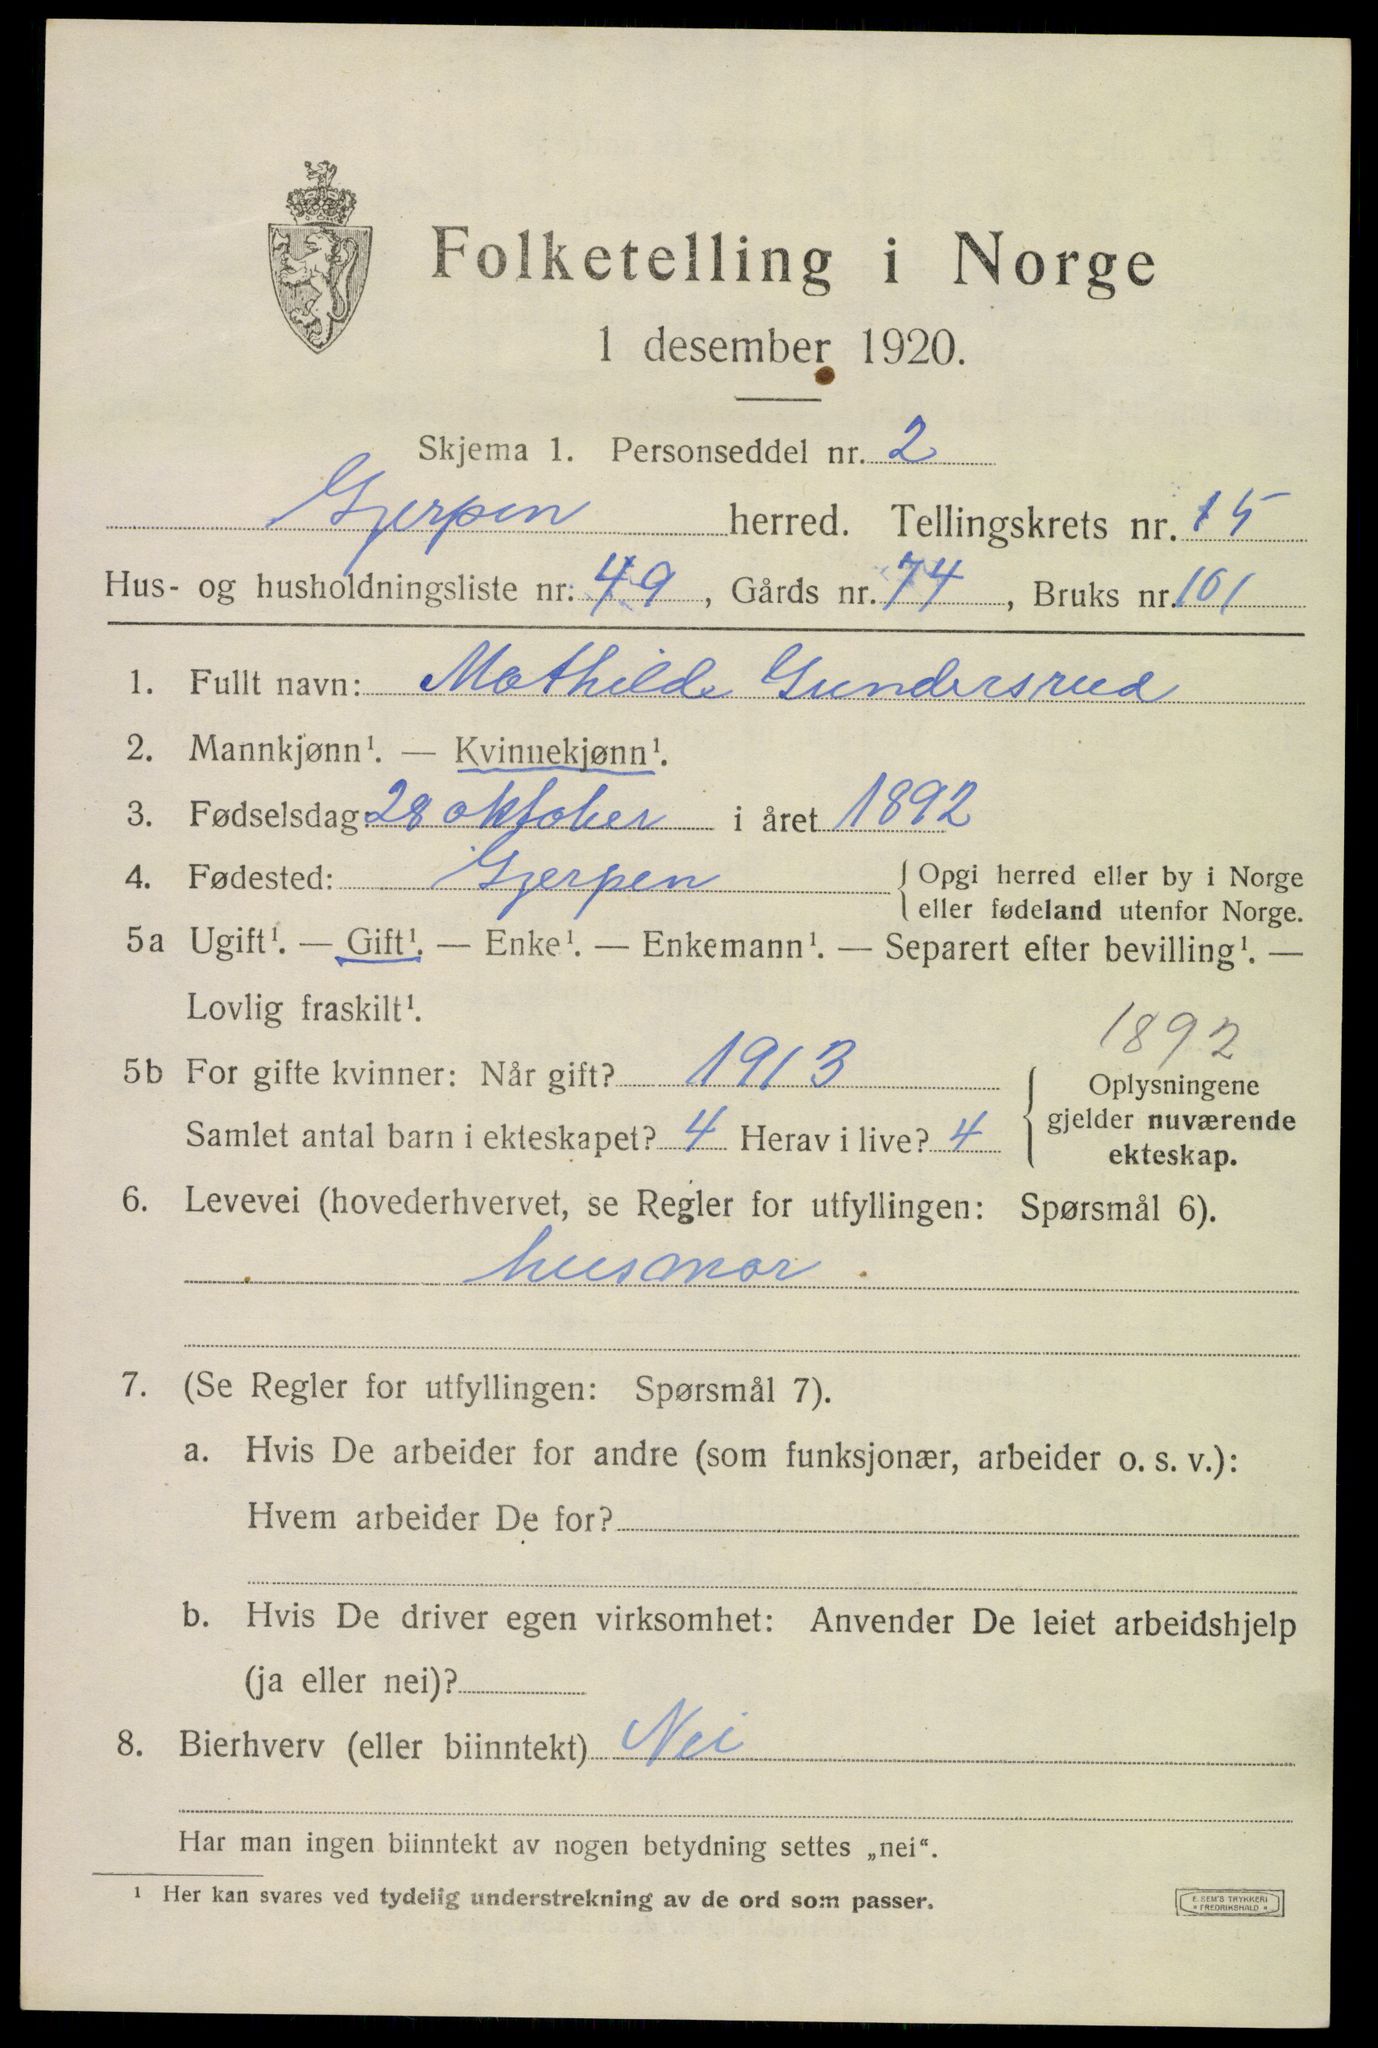 Folketelling i Norge
1 desember 1920.
Skjema 1. Personseddel nr. 2
Gjerpen herred. Tellingskrets nr. 15
Hus- og husholdningsliste nr. 49, Gårds nr. 74, Bruks nr. 101
1. Fullt navn: Mathilde Gundersrud
2. Mannkjønn¹. — Kvinnekjønn¹.
3. Fødselsdag: 28 oktober i året 1892
4. Fødested: Gjerpen { Opgi herred eller by i Norge
eller fødeland utenfor Norge.
5a Ugift¹. — Gift¹. — Enke¹. — Enkemann¹. — Separert efter bevilling¹. —
Lovlig fraskilt¹.
1892
5b For gifte kvinner: Når gift? 1913
Samlet antal barn i ekteskapet? 4 Herav i live? 4
{ Oplysningene
gjelder nuværende
ekteskap.
6. Levevei (hovederhvervet, se Regler for utfyllingen: Spørsmål 6).
husmor
7. (Se Regler for utfyllingen: Spørsmål 7).
a. Hvis De arbeider for andre (som funksjonær, arbeider o. s. v.):
Hvem arbeider De for?
b. Hvis De driver egen virksomhet: Anvender De leiet arbeidshjelp
(ja eller nei)?
8. Bierhverv (eller biinntekt) Nei
Har man ingen biinntekt av nogen betydning settes „nei“.
¹ Her kan svares ved tydelig understrekning av de ord som passer.
E. SEM'S TRYKKERI
* FREDRIKSHALD *